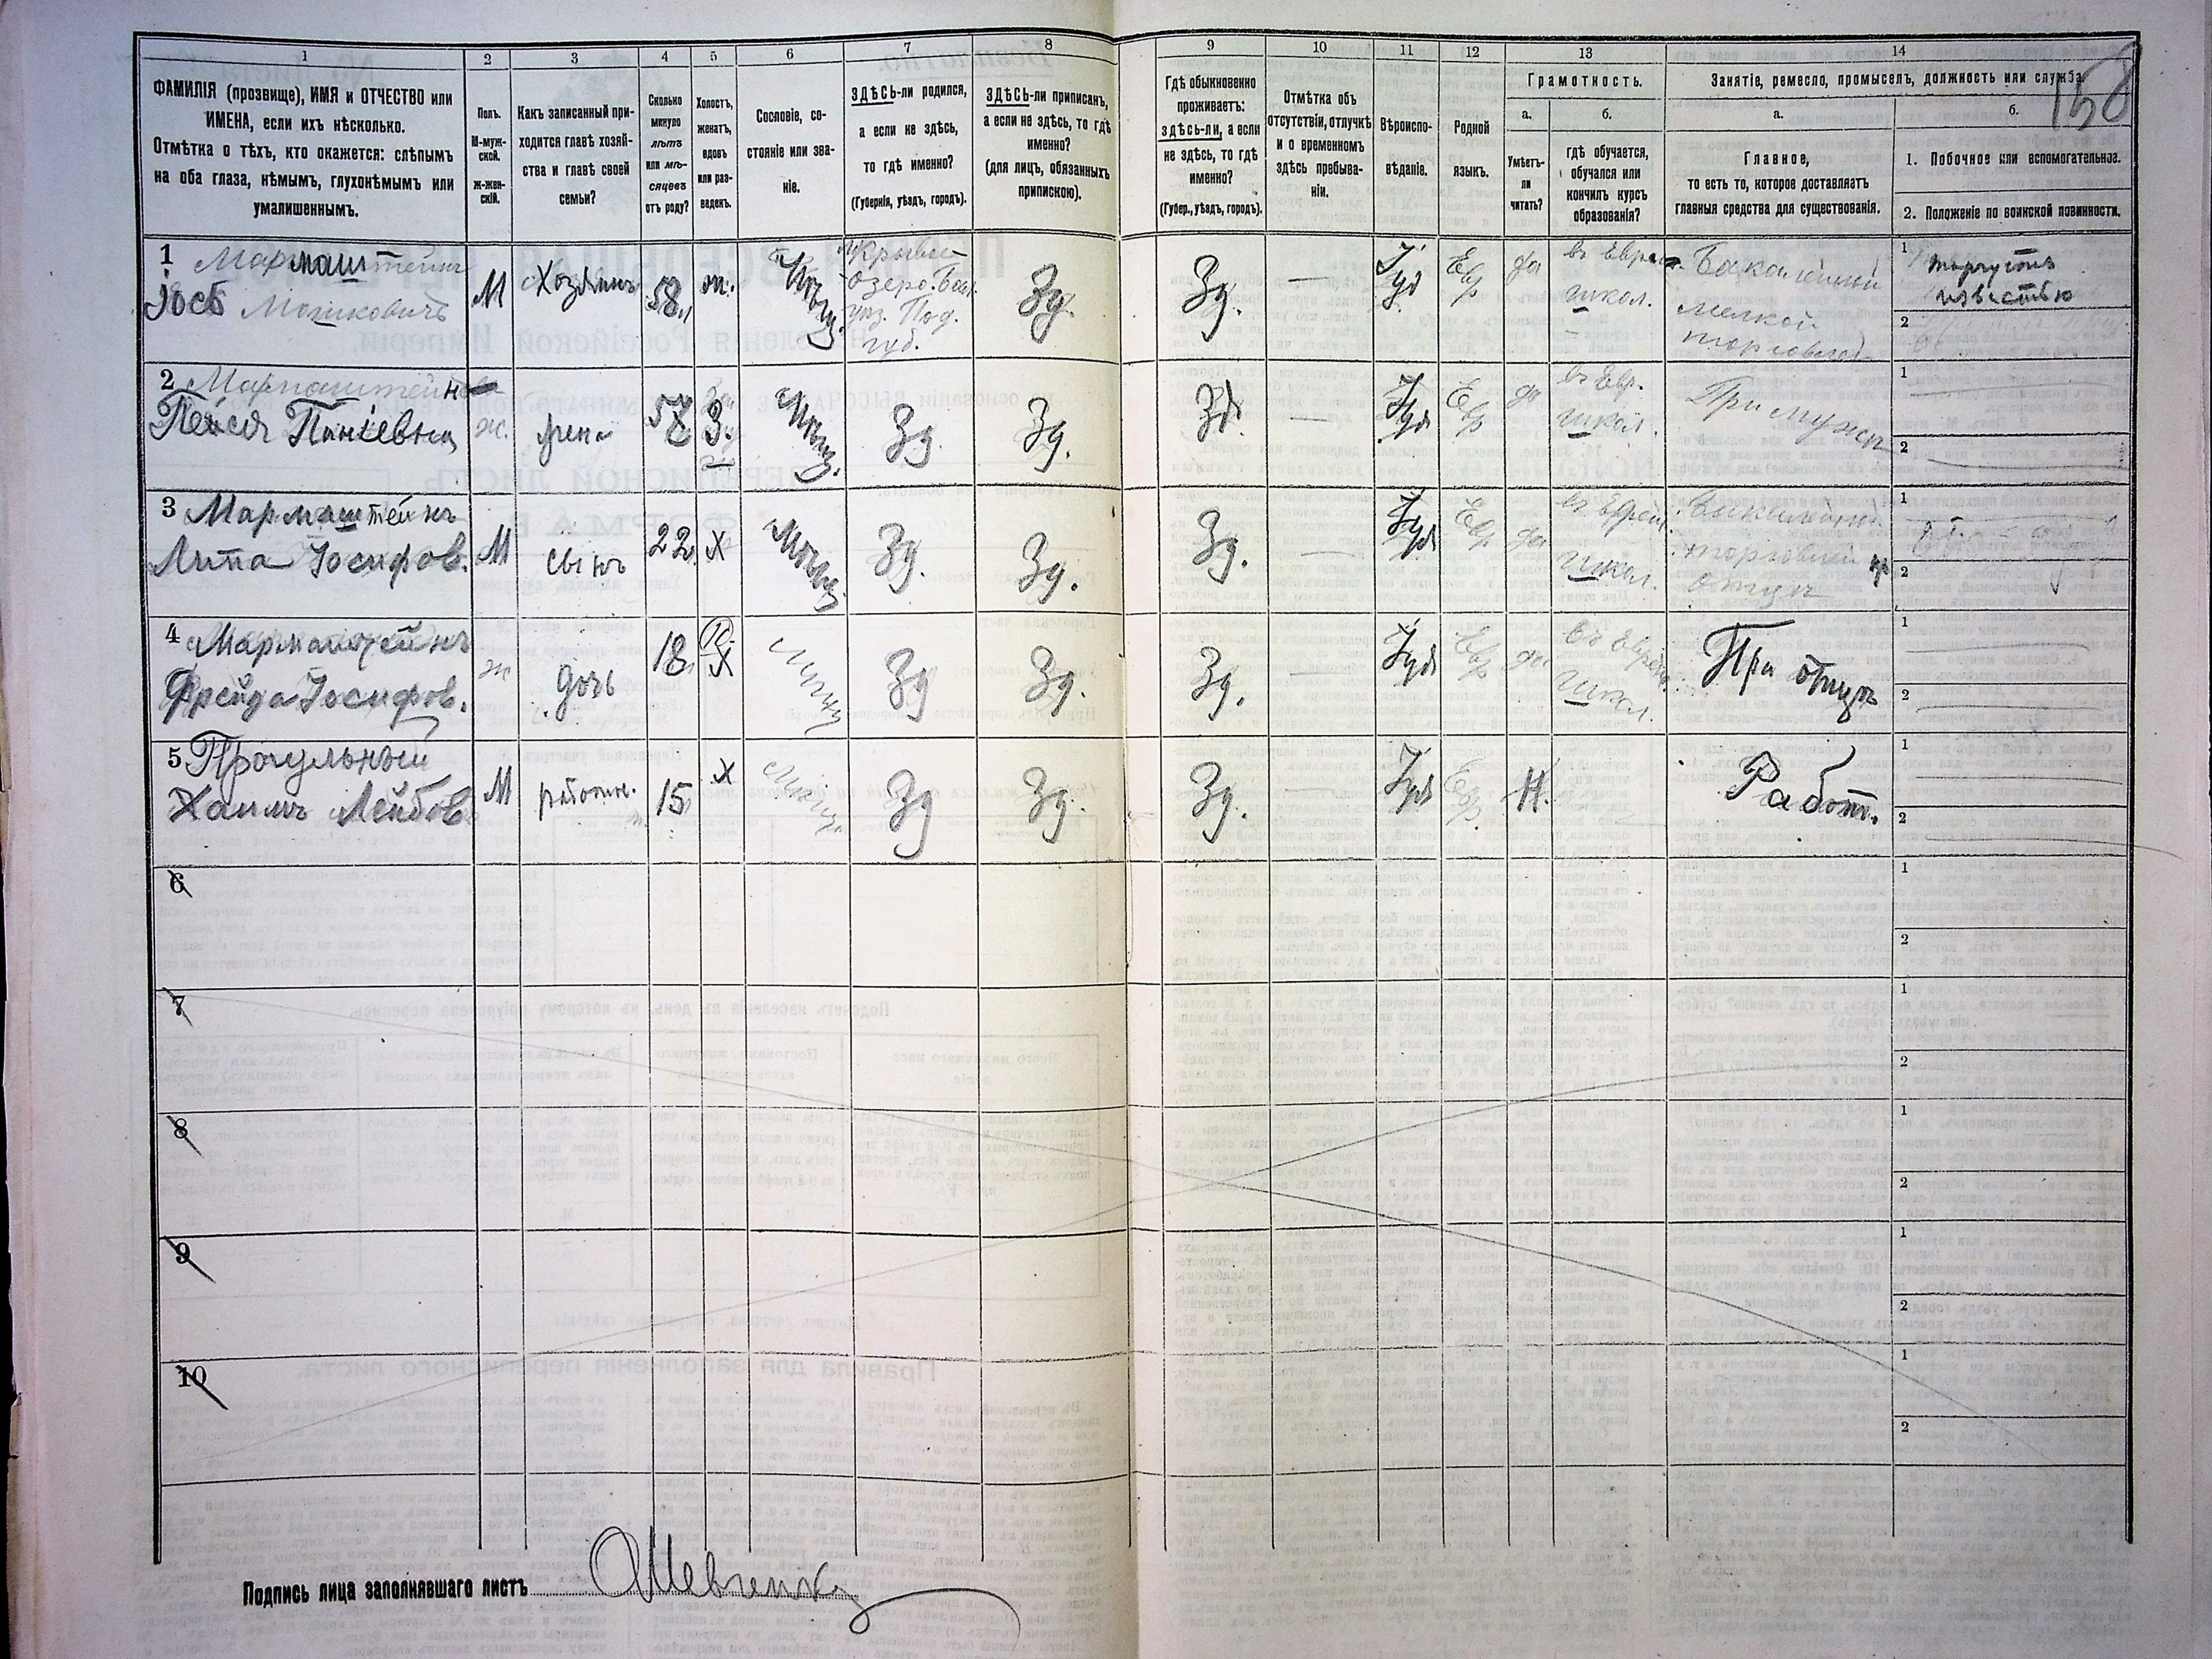 158
1 2 3 4 5 6 7 8 9 10 11 12 13 14
ФАМИЛІЯ (прозвище), ИМЯ и ОТЧЕСТВО или
ИМЕНА, если ихъ нѣсколько.
Отмѣтка о тѣхъ, кто окажется: слѣпымъ
на оба глаза, нѣмымъ, глухонѣмымъ или
умалишеннымъ.
Полъ.
М-муж-
ской.
ж-жен-
скій.
Какъ записанный при-
ходится главѣ хозяй-
ства и главѣ своей
семьи?
Сколько
минуло
лѣтъ
или мѣ-
сяцевъ
отъ роду?
Холостъ,
женатъ,
вдовъ
или раз-
веденъ.
Сословіе, со-
стояніе или зва-
ніе.
ЗДѢСЬ-ли родился,
а если не здѣсь,
то гдѣ именно?
(Губернія, уѣздъ, городъ).
ЗДѢСЬ-ли приписанъ,
а если не здѣсь, то гдѣ
именно?
(для лицъ, обязанныхъ
припискою).
Гдѣ обыкновенно
проживаетъ:
здѣсь-ли, а если
не здѣсь, то гдѣ
именно?
(Губер., уѣздъ, городъ).
Отмѣтка объ
отсутствіи, отлучкѣ
и о временномъ
здѣсь пребыва-
ніи.
Вѣроиспо-
вѣданіе.
Родной
языкъ.
Грамотность.
а.
Умѣетъ-
ли
читать?
б.
гдѣ обучается,
обучался или
кончилъ курсъ
образованія?
Занятіе, ремесло, промыселъ, должность или служба.
а.
Главное,
то есть то, которое доставляетъ
главныя средства для существованія.
б.
1. Побочное или вспомогательное.
2. Положеніе по воинской повинности.
1 Мармаштейнъ
Іосъ Мошковичъ
М
Хозяинъ
58
ж.
Мѣщ.
Кривое
Озеро. Бал.
уѣз. Под.
губ.
Зд.
Зд.
—
Іуд
Евр
да
въ Евр
школ.
Бакалейной
мелкой
торговлей
1 торгуетъ
известью
2
2 Мармаштейн
Пейся Пиніевна
ж.
жена
57
З.
Мѣщ.
Зд.
Зд.
Зд.
—
Іуд
Евр
да
въ Евр.
школ.
При мужѣ
1
2
3 Мармаштейнъ
Липа Іосифов.
М
сынъ
22
Х
Мѣщ
Зд.
Зд.
Зд.
—
Іуд
Евр
да
въ Еврей
школ.
Бакалейной
торговлей пр
отцѣ
1
2
4 Мармаштейнъ
Фрейда Іосифов.
ж
дочь
18
Х
Мѣщ
Зд
Зд.
Зд.
—
Іуд
Евр
да
въ Еврей
школ.
При отцѣ
1
2
5 Прогульный
Хаимъ Лейбов
М
работн.
15
Х
Мѣщ.
Зд
Зд.
Зд.
Іуд
Евр.
Н.
Работ.
1
2
6
1
2
7
1
2
8
1
2
9
1
2
10
1
2
Подпись лица заполнявшаго листъ